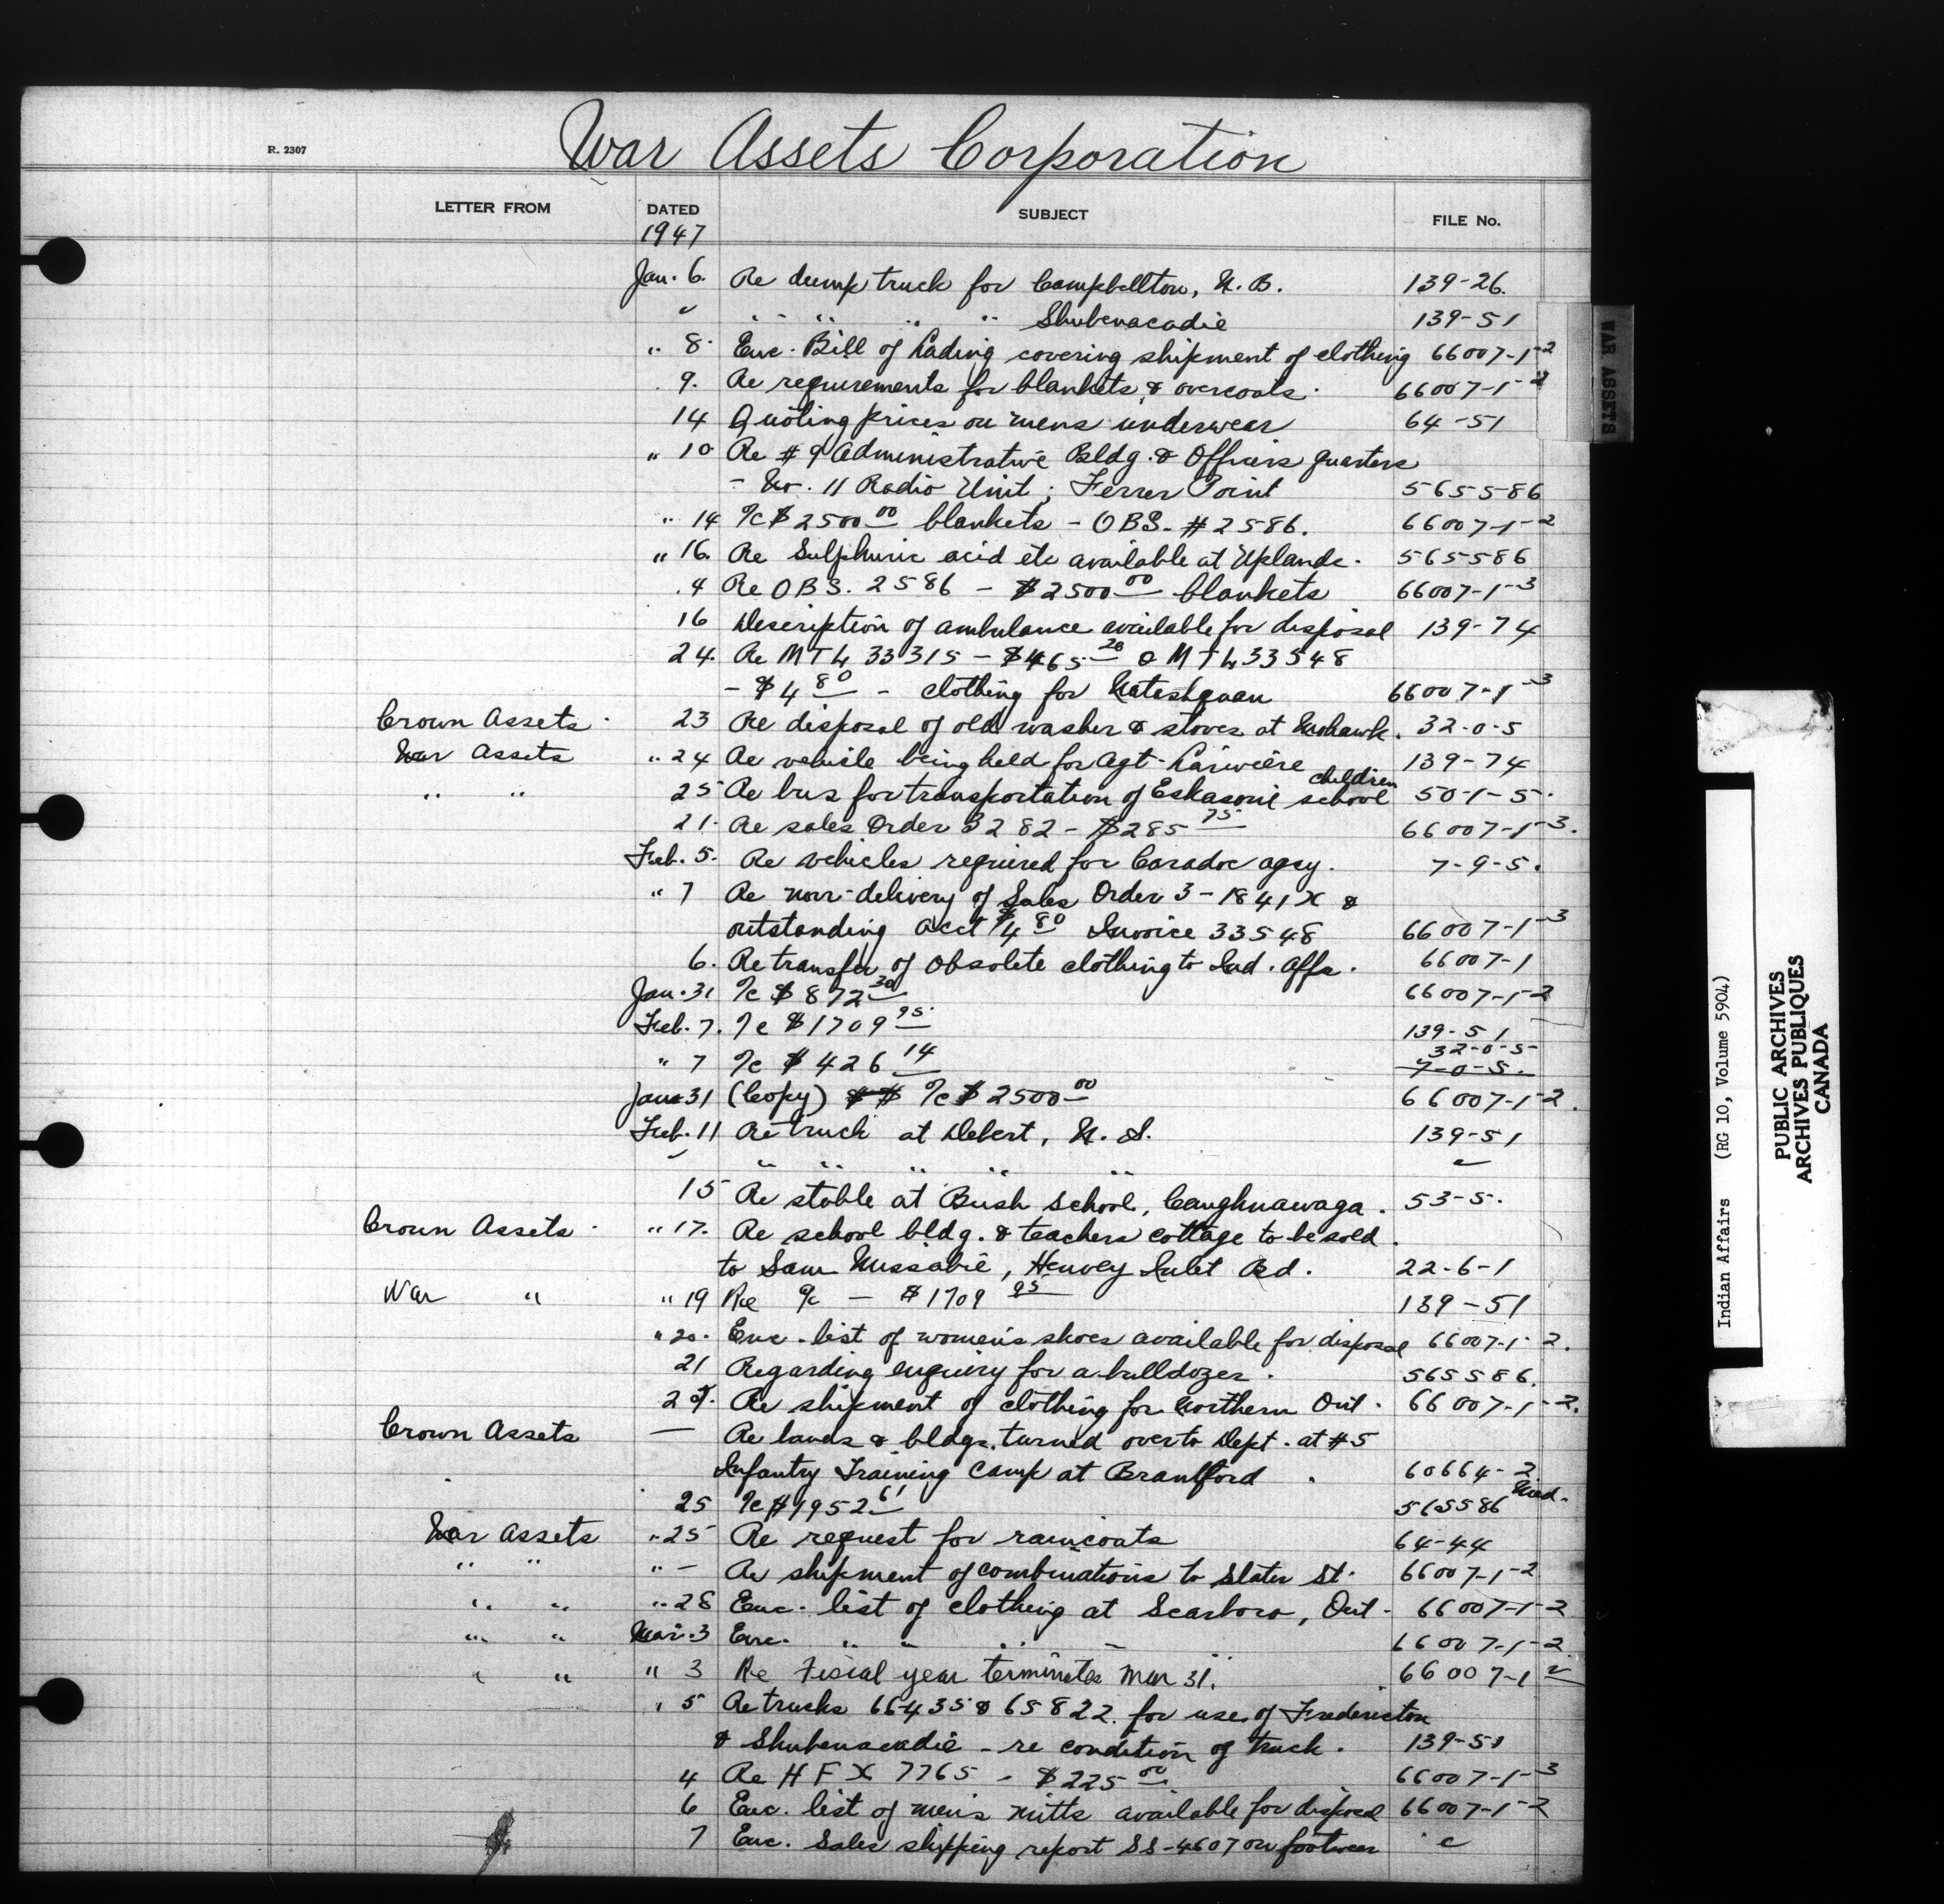 War Assets Corporation
R. 2307
LETTER FROM DATED SUBJECT FILE No.
1947
Jan. 6. Re dump truck for Campbellton, N.B. 139-26.
" " " " " " Shubenacadie 139-51
" 8. Enc. Bill of Lading covering shipment of clothing 66007-1-2
9. Re requirements for blankets & overcoats. 66007-1-2
14 Quoting prices on mens underwear 64-51
" 10 Re #9 Administrative Bldg. & Officers quarters
- No. 11 Radio Unit; Ferrer Point 565586
" 14 %c $2500 00 blankets - OBS. #2586. 66007-1-2
" 16. Re Sulphuric acid etc available at Uplands. 565586
.4 Re OBS. 2586 - $2500 00 blankets 66007-1-3
16 Description of ambulance available for disposal 139-74
24. Re MTL 33315 - $465 20 & MTL 33548
- $4 80 - clothing for Nateshquan 66007-1-3
Crown Assets. 23 Re disposal of old washer & stoves at Mohawk. 32-0-5
War Assets " 24 Re vehicle being held for Agt. Lariviere 139-74
children
" " 25 Re bus for transportation of Eskasoni school 50-1-5.
21. Re sales Order 3282 - $285 75 66007-1-3.
Feb. 5. Re vehicles required for Caradoc agcy. 7-9-5.
" 7 Re non-delivery of Sales Order 3-1841X &
outstanding acct $4 80 Invoice 33548 66007-1-3
6. Re transfer of Obsolete clothing to Ind. Affs. 66007-1
Jan. 31 %c $872 30 66007-1-2
Feb. 7. %c $1709 95. 139-51
32-0-5
" 7 %c $426 14 7-0-5.
Jan 31 (Copy) $ $ %c $2500 00 66007-1-2.
Feb. 11 Re truck at Debert, N.S. 139-51
" " " " " " "
15 Re stable at Bush School, Caughnawaga. 53-5.
Crown Assets. " 17. Re school bldg. & teachers cottage to be sold.
to Sam Nissabie, Henvey Inlet Bd. 22-6-1
War " " 19 Re %c - $1709 95 139-51
" 20. Enc. list of women's shoes available for disposal 66007-1-2.
21 Regarding enquiry for a bulldozer. 565586.
Re shipment of clothing for Northern Ont. 66007-1-2.
Crown Assets — Re lands & bldgs. turned over to Dept. at #5
Infantry Training Camp at Brantford. 60664-2
25 %c $1952 61 565586
War Assets " 25 Re request for raincoats 64-44
" " " - Re shipment of combinations to Slater St. 66007-1-2
" " " 28 Enc. list of clothing at Scarboro, Ont. 66007-1-2
" " Mar. 3 Enc. " " " " 66007-1-2
" " " 3 Re Fiscal year terminates Mar 31. 66007-1 2
" 5 Re trucks 66435 & 65822. for use of Fredericton
& Shubenacadie - re condition of truck. 139-51
4 Re HFX 7765 - $225 00 66007-1-3
6 Enc. list of men's mitts available for disposal 66007-1-2
7 Enc. Sales shipping report SS-4607 on footwear "
WAR ASSETS
Indian Affairs (RG 10, Volume 5904)
PUBLIC ARCHIVES
ARCHIVES PUBLIQUES
CANADA